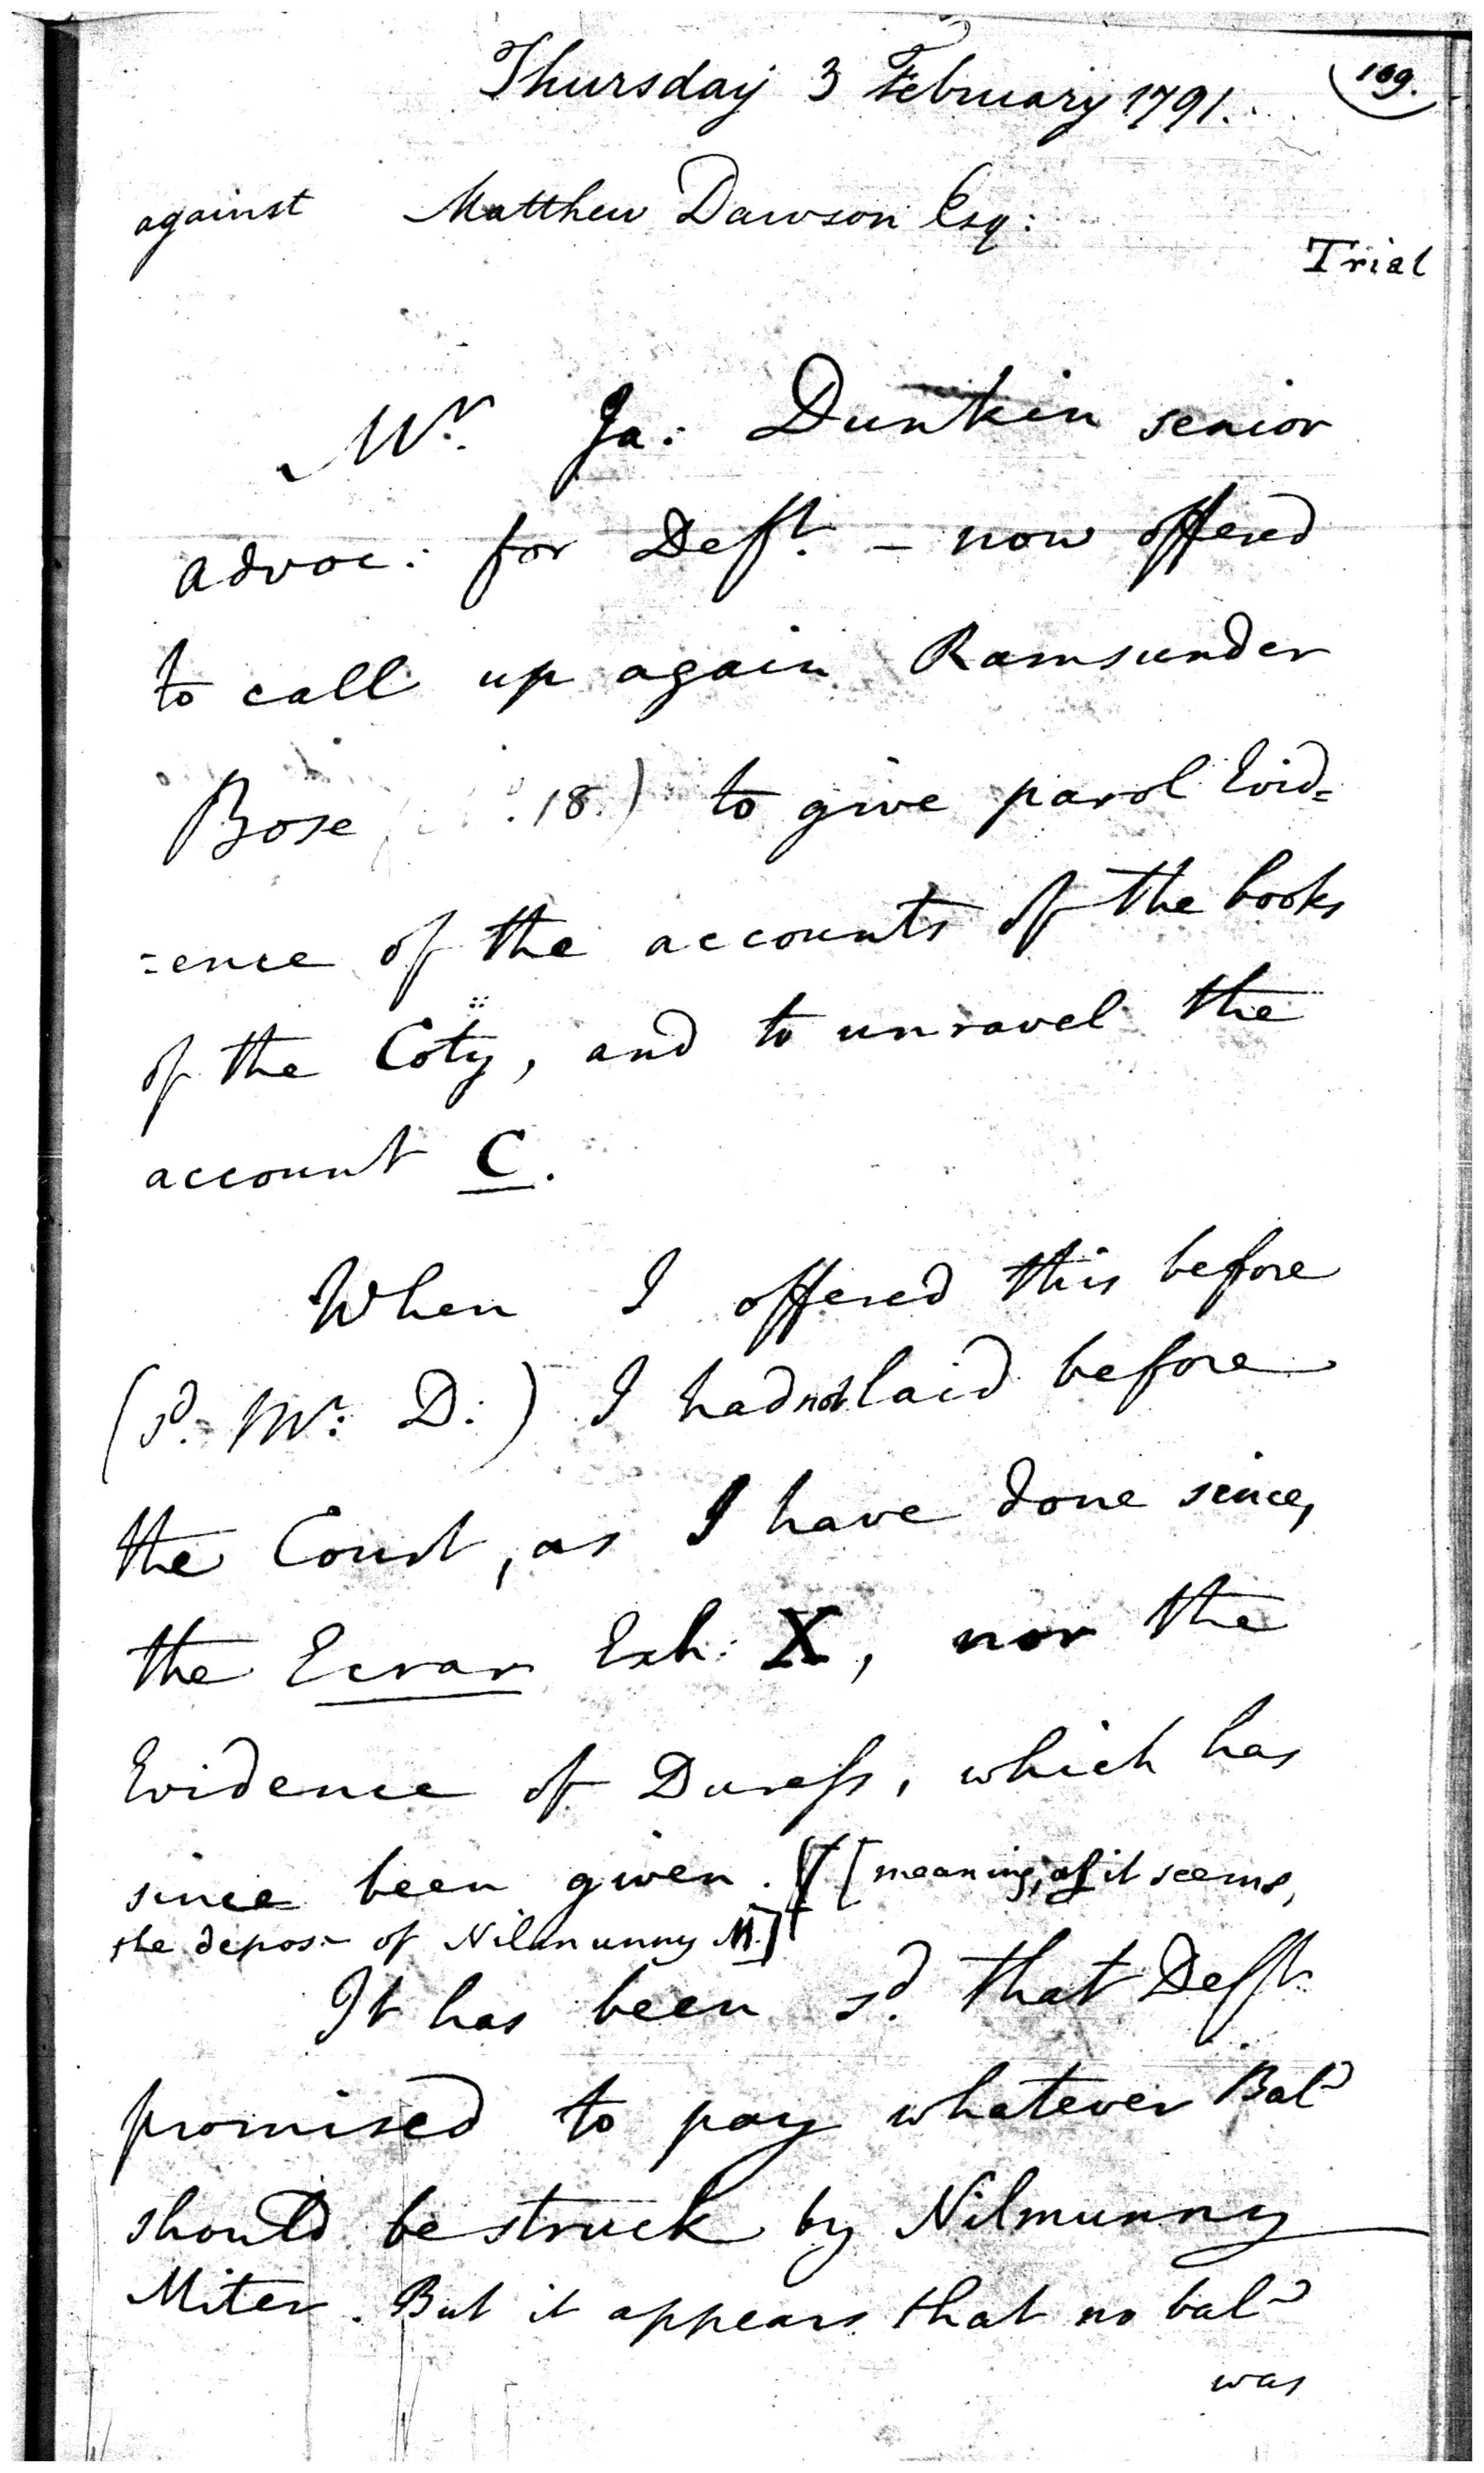 Thursday 3 February 1791.
109.
against Matthew Dawson Esq:
Trial
Mr. Ja: Dunkin senior
advoc: for Deft. – now offered
to call up again Ramsunder
Bose 18.) to give parol Evid=
=ence of the accounts of the books
of the Coty, and to unravel the
account C.
When I offered this before
(sd. Mr: D:) I had not laid before
the Court, as I have done since,
the Ecrar Exh: X, nor the
Evidence of Duress, which has
since been given. [meaning, as it seems,
the depos: of Nilmunny M.]
It has been sd. that Deft.
promised to pay whatever Bal
should be struck by Nilmunny
Miter. But it appears that no bal
was